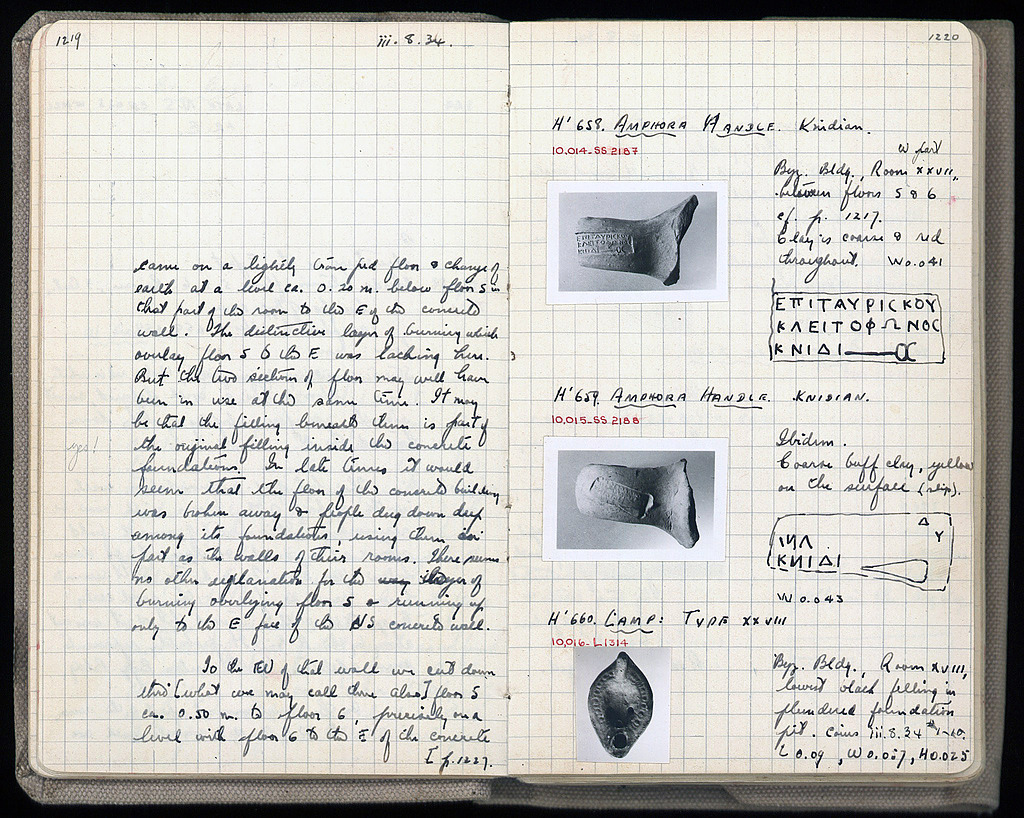 1219
iii. 8. 34.
came on a lightly tramped floor & change of
earth at a level ca. 0.20 m. below floor 5 in
that part of the room to the E of the concrete
wall. The distinctive layer of burning which
overlay floor 5 to the E was lacking here.
But the two sections of floor may well have
been in use at the same time. It may
be that the filling beneath them is part of
the original filling inside the concrete
yes!
foundations. In late times it would
seem that the floor of the concrete building
was broken away & people dug down deep
among its foundations, using them in
part as the walls of their rooms. There seems
no other explanation for the layer of
burning overlying floor 5 & running up
only to the E face of the NS concrete wall.
To the W of that wall we cut down
thro [what we may call there also] floor 5
ca. 0.50 m. to floor 6, precisely on a
level with floor 6 to the E of the concrete
[p. 1227.
1220
H' 658. AMPHORA HANDLE. Knidian.
10,014-SS 2187
W part
Byz. Bldg., Room XXVII,
between floors 5 & 6
cf. p. 1217.
Clay is coarse & red
throughout. W 0.041
ΕΠΙΤΑΥΡΙΣΚΟΥ
ΚΛΕΙΤΟΦΩΝΟΣ
ΚΝΙΔΙ
H' 659. AMPHORA HANDLE. KNIDIAN.
10,015-SS 2188
Ibidem.
Coarse buff clay, yellow
on the surface (slip).
Δ
Υ
ΚΝΙΔΙ
W 0.043
H' 660. LAMP: TYPE XXVIII
10,016-L 1314
Byz. Bldg., Room XVIII,
lowest black filling in
plundered foundation
pit. Coins iii.8.34 #1-20.
L 0.09, W 0.057, H 0.025